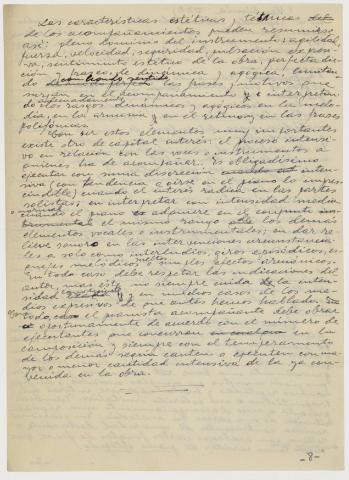 Las características estéticas y técnicas de
los acompañamientos pueden resumirse
así: pleno dominio del instrumento: agilidad,
fuerza, velocidad, seguridad, pulsación exposi-
va, sentimiento estético de la obra, perfecta dic-
ción y fraseo, la dinámica y agógica,
con hondo sentido las frases y motivos que
surgen en el desenvolvimiento e interpretan-
do adecuadamente los rasgos dinámicos y agógicos en la melo-
día, en la armonía y en el ritmo, en las frases
polifónicas.
Con ser estos elementos muy importantes
existe otro de capital interés: el proceso intensi-
vo en relación con las voces o instrumentos a
quienes ha de acompañar. Es obligadísimo
ejecutar con suma discreción inten-
siva (con tendencia a oirse en el piano lo impres-
cindible) cuando el interés radica en las partes
solistas; en interpretar con intensidad media
cuando el piano adquiere en el conjunto
el mismo rango que los demás
elementos vocales o instrumentales; en dar re-
lieve sonoro en las intervenciones circunstancia-
les a solo como interludios, giros episódicos, es-
quejes melódicos, bellos efectos armónicos.
En todo caso debe respetar las indicaciones del
autor, mas éste no siempre cuida de la inten-
sidad en muchos casos de los me-
dios expresivos de que antes hemos hablado.
todo, el pianista acompañante debe obrar
oportunamente de acuerdo con el número de
ejecutantes que concurran en la
composición y siempre con el temperamento
de los demás según canten o ejecuten con ma-
yor o menor cantidad intensiva de la ya con-
cebida en la obra.
-8-